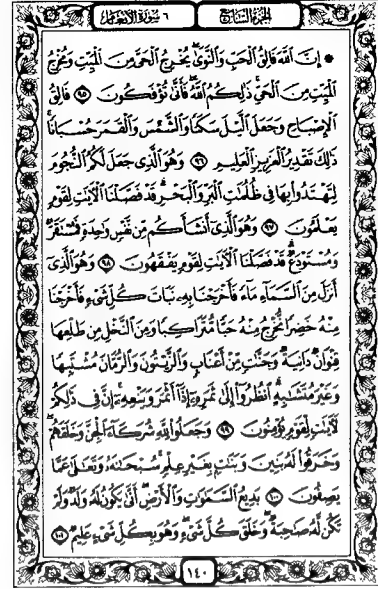 الجزء السابع
٦ سورة الأنعام
۞ إِنَّ ٱللَّهَ فَالِقُ ٱلۡحَبِّ وَٱلنَّوَىٰۖ يُخۡرِجُ ٱلۡحَيَّ مِنَ ٱلۡمَيِّتِ وَمُخۡرِجُ
ٱلۡمَيِّتِ مِنَ ٱلۡحَيِّۚ ذَٰلِكُمُ ٱللَّهُۖ فَأَنَّىٰ تُؤۡفَكُونَ ٩٥ فَالِقُ
ٱلۡإِصۡبَاحِ وَجَعَلَ ٱلَّيۡلَ سَكَنٗا وَٱلشَّمۡسَ وَٱلۡقَمَرَ حُسۡبَانٗاۚ
ذَٰلِكَ تَقۡدِيرُ ٱلۡعَزِيزِ ٱلۡعَلِيمِ ٩٦ وَهُوَ ٱلَّذِي جَعَلَ لَكُمُ ٱلنُّجُومَ
لِتَهۡتَدُواْ بِهَا فِي ظُلُمَٰتِ ٱلۡبَرِّ وَٱلۡبَحۡرِۗ قَدۡ فَصَّلۡنَا ٱلۡأٓيَٰتِ لِقَوۡمٖ
يَعۡلَمُونَ ٩٧ وَهُوَ ٱلَّذِيٓ أَنشَأَكُم مِّن نَّفۡسٖ وَٰحِدَةٖ فَمُسۡتَقَرّٞ
وَمُسۡتَوۡدَعٞۗ قَدۡ فَصَّلۡنَا ٱلۡأٓيَٰتِ لِقَوۡمٖ يَفۡقَهُونَ ٩٨ وَهُوَ ٱلَّذِيٓ
أَنزَلَ مِنَ ٱلسَّمَآءِ مَآءٗ فَأَخۡرَجۡنَا بِهِۦ نَبَاتَ كُلِّ شَيۡءٖ فَأَخۡرَجۡنَا
مِنۡهُ خَضِرٗا نُّخۡرِجُ مِنۡهُ حَبّٗا مُّتَرَاكِبٗا وَمِنَ ٱلنَّخۡلِ مِن طَلۡعِهَا
قِنۡوَانٞ دَانِيَةٞ وَجَنَّٰتٖ مِّنۡ أَعۡنَابٖ وَٱلزَّيۡتُونَ وَٱلرُّمَّانَ مُشۡتَبِهٗا
وَغَيۡرَ مُتَشَٰبِهٍۗ ٱنظُرُوٓاْ إِلَىٰ ثَمَرِهِۦٓ إِذَآ أَثۡمَرَ وَيَنۡعِهِۦٓۚ إِنَّ فِي ذَٰلِكُمۡ
لَأٓيَٰتٖ لِّقَوۡمٖ يُؤۡمِنُونَ ٩٩ وَجَعَلُواْ لِلَّهِ شُرَكَآءَ ٱلۡجِنَّ وَخَلَقَهُمۡۖ
وَخَرَقُواْ لَهُۥ بَنِينَ وَبَنَٰتِۭ بِغَيۡرِ عِلۡمٖۚ سُبۡحَٰنَهُۥ وَتَعَٰلَىٰ عَمَّا
يَصِفُونَ ١٠٠ بَدِيعُ ٱلسَّمَٰوَٰتِ وَٱلۡأَرۡضِۖ أَنَّىٰ يَكُونُ لَهُۥ وَلَدٞ وَلَمۡ
تَكُن لَّهُۥ صَٰحِبَةٞۖ وَخَلَقَ كُلَّ شَيۡءٖۖ وَهُوَ بِكُلِّ شَيۡءٍ عَلِيمٞ ١٠١
١٤٠